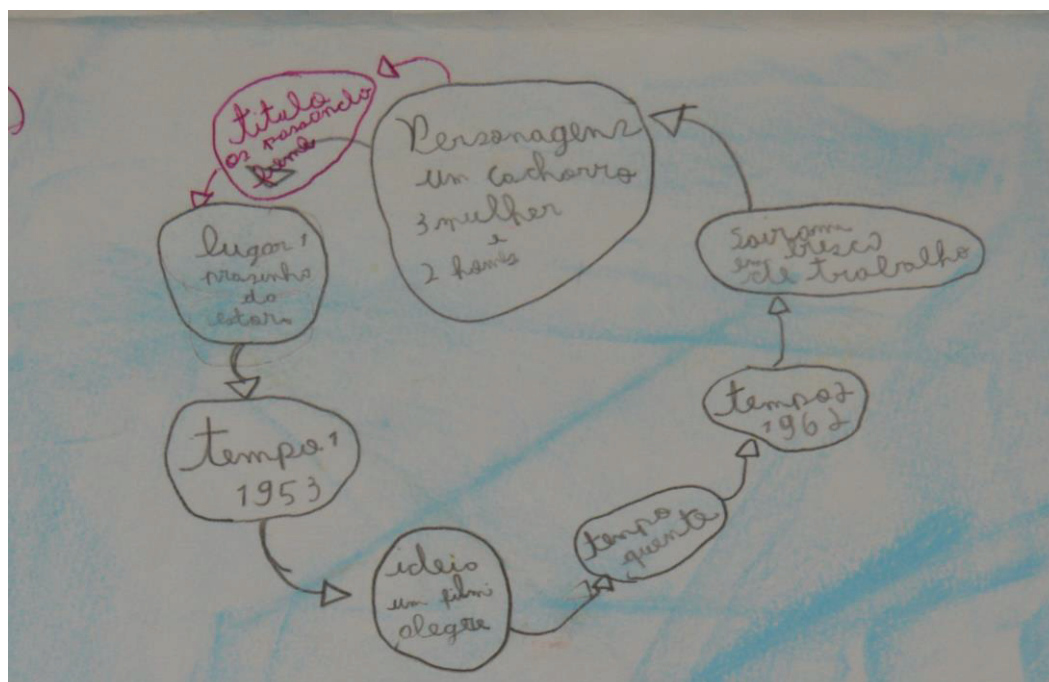 titulo
os passando
fome
Personagens
um cachorro
3 mulher
e
2 homes
lugar 1
prasinho
do
estor
tempo 1
1953
ideia
um film
alegre
tempo
quente
tempo 2
1962
em
de trabalho